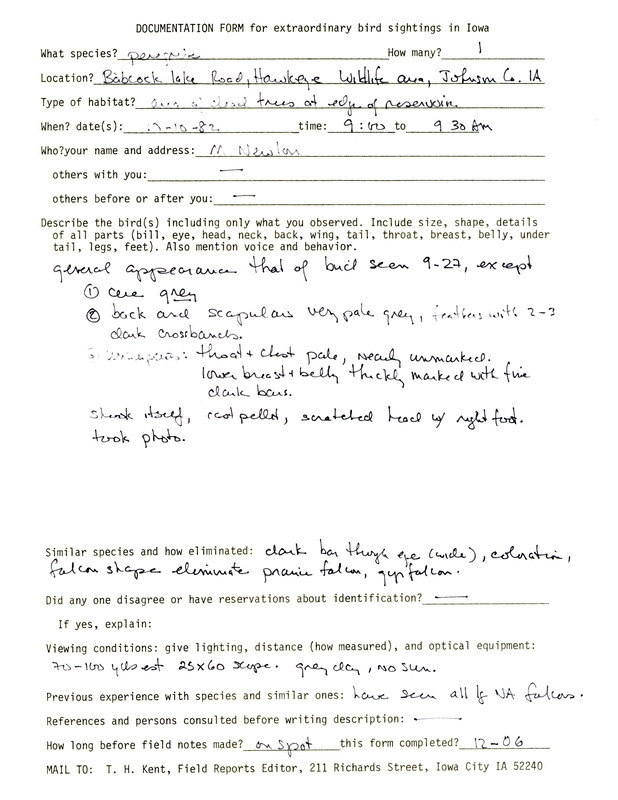 DOCUMENTATION FORM for extraordinary bird sightings in Iowa
What species? peregrine How many? 1
Location? Babcock lake Road, Hawkeye Wildlife area, Johnson Co. IA
Type of habitat? area of dead trees at edge of reservoir.
When? date(s): -10-82 time: 9:00 to 9 30 AM
Who?your name and address: M. Newlon
others with you: —
others before or after you: —
Describe the bird(s) including only what you observed. Include size, shape, details
of all parts (bill, eye, head, neck, back, wing, tail, throat, breast, belly, under
tail, legs, feet). Also mention voice and behavior.
general appearance that of bird seen 9-27, except
① cere grey
② back and scapulars very pale grey, feathers with 2-3
dark crossbands.
3 underparts: throat + chest pale, nearly unmarked.
lower breast + belly thickly marked with fine
dark bars.
shook itself, cast pellet, scratched head w/ right foot.
took photo.
Similar species and how eliminated: dark bar through eye (wide), coloration,
falcon shape eliminate prairie falcon, gyrfalcon.
Did any one disagree or have reservations about identification? —
If yes, explain:
Viewing conditions: give lighting, distance (how measured), and optical equipment:
70-100 yds est 25x60 scope. grey day, no sun.
Previous experience with species and similar ones: have seen all of NA falcons.
References and persons consulted before writing description: —
How long before field notes made? on spot this form completed? 12-06
MAIL TO: T. H. Kent, Field Reports Editor, 211 Richards Street, Iowa City IA 52240